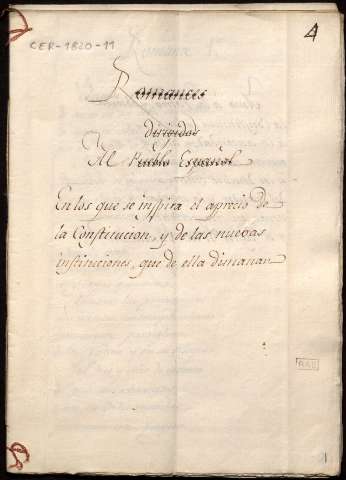 CER-1820-11
4
Romances
dirigidos
Al Pueblo Español
En los que se inspira el aprecio de
la Constitucion, y de las nuevas
instituciones, que de ella dimanan
RAE
1